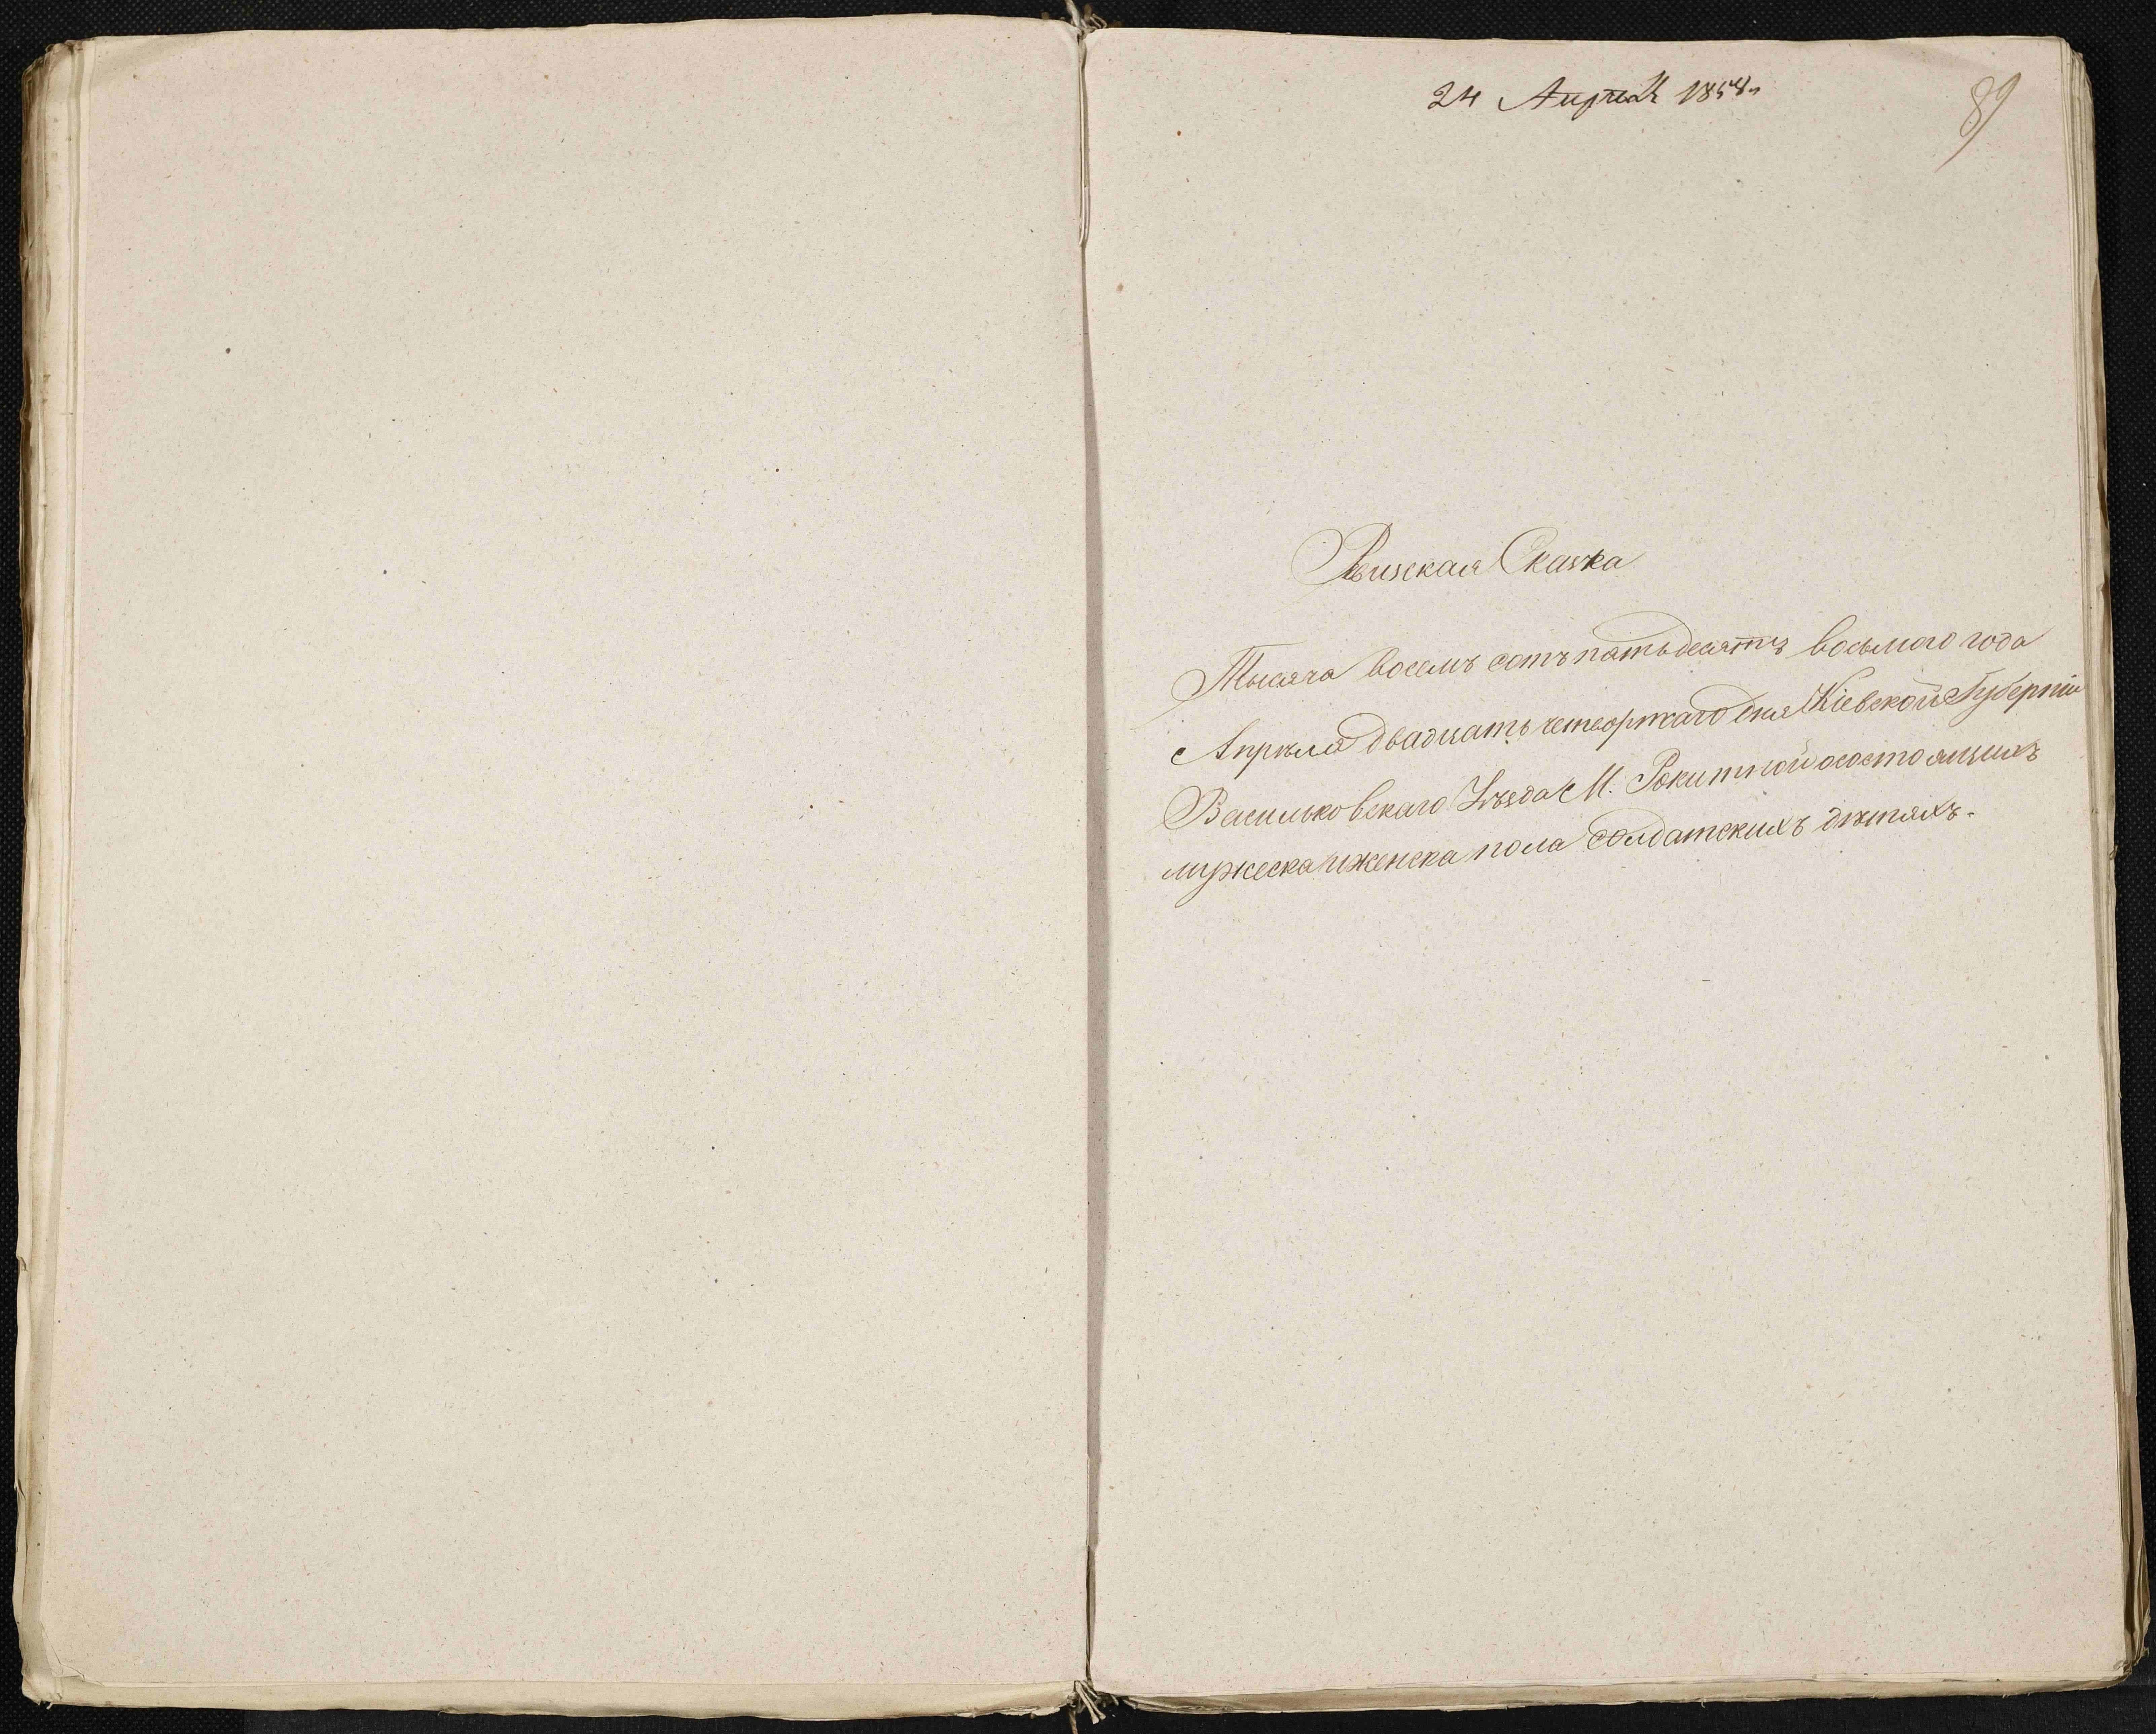 24 Апрѣля 1858 г.
89
Ревизская Сказка
Тысяча восемъ сотъ пятьдесятъ восьмого года
Апрѣля двадцать четвортаго дня Кіевской Губерніи
Васильковскаго Уѣзда М. Рокитной о состоящихъ
мужеска и женска пола солдатскихъ дѣтяхъ.